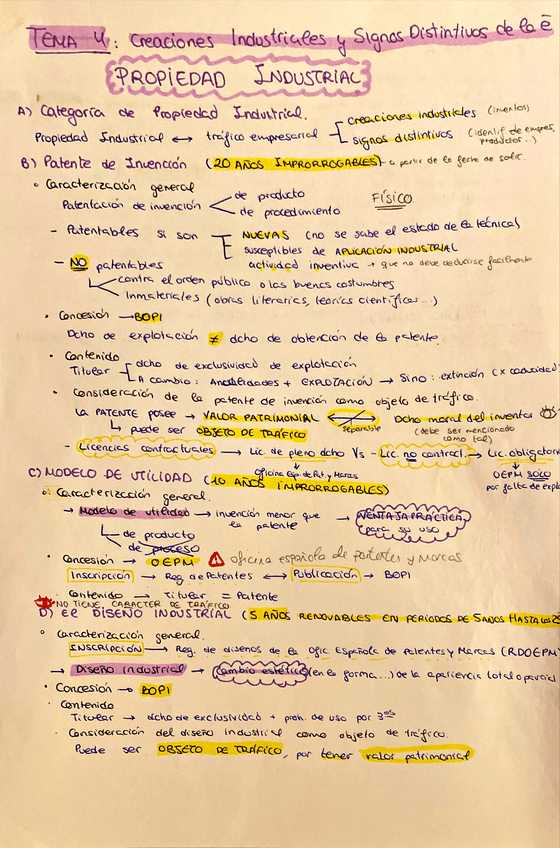 TEMA 4: Creaciones Industriales y Signos Distintivos de la ē
PROPIEDAD INDUSTRIAL
A) Categoría de Propiedad Industrial.
creaciones industriales (inventos)
Propiedad Industrial ↔ tráfico empresarial
signos distintivos (identif. de empres, productos...)
B) Patente de Invención (20 AÑOS IMPRORROGABLES) - a partir de la fecha de solic.
• Caracterización general
Patentación de invención < de producto
de procedimiento
FÍSICO
- Patentables si son NUEVAS (no se sabe el estado de la técnica)
susceptibles de APLICACIÓN INDUSTRIAL
actividad inventiva → que no debe deducirse facilmente
- NO patentables
contra el orden público o las buenas costumbres
Inmateriales (obras literarias, teorías científicas...)
• Concesión → BOPI
Dcho de explotación ≠ dcho de obtención de la patente.
• Contenido
Titular dcho de exclusividad de explotación
A cambio: Anualidades + EXPLOTACIÓN → Si no: extinción (x caducidad)
• Consideración de la patente de invención como objeto de tráfico.
La PATENTE posee → VALOR PATRIMONIAL ↔ Dcho moral del inventor
separable
(debe ser mencionado como tal)
↳ puede ser OBJETO DE TRÁFICO
- Licencias contractuales → Lic. de pleno dcho Vs - Lic. no contract. → Lic. obligator
OEPM solo
por falta de expl
Oficina Esp. de Pat. y Marcas
C) MODELO DE UTILIDAD (10 AÑOS IMPRORROGABLES)
• Caracterización general.
→ Modelo de utilidad → invención menor que la patente → VENTAJA PRÁCTICA para su uso
de producto
de proceso
• Concesión → OEPM ! oficina española de patentes y Marcas
Inscripción → Reg. de Patentes ↔ Publicación → BOPI
• Contenido → Titular = Patente
NO TIENE CARACTER DE TRÁFICO
D) El DISEÑO INDUSTRIAL (5 AÑOS RENOVABLES EN PERÍODOS DE 5 AÑOS HASTA LOS 2
• Caracterización general.
INSCRIPCIÓN → Reg. de diseños de la Ofic Española de Patentes y Marcas (RDOEPM
→ Diseño industrial → cambio estético (en la forma...) de la apariencia total o parcial
• Concesión → BOPI
• Contenido
Titular → dcho de exclusividad + proh. de uso por 3ºs
• Consideración del diseño industrial como objeto de tráfico.
Puede ser OBJETO DE TRÁFICO, por tener valor patrimonial